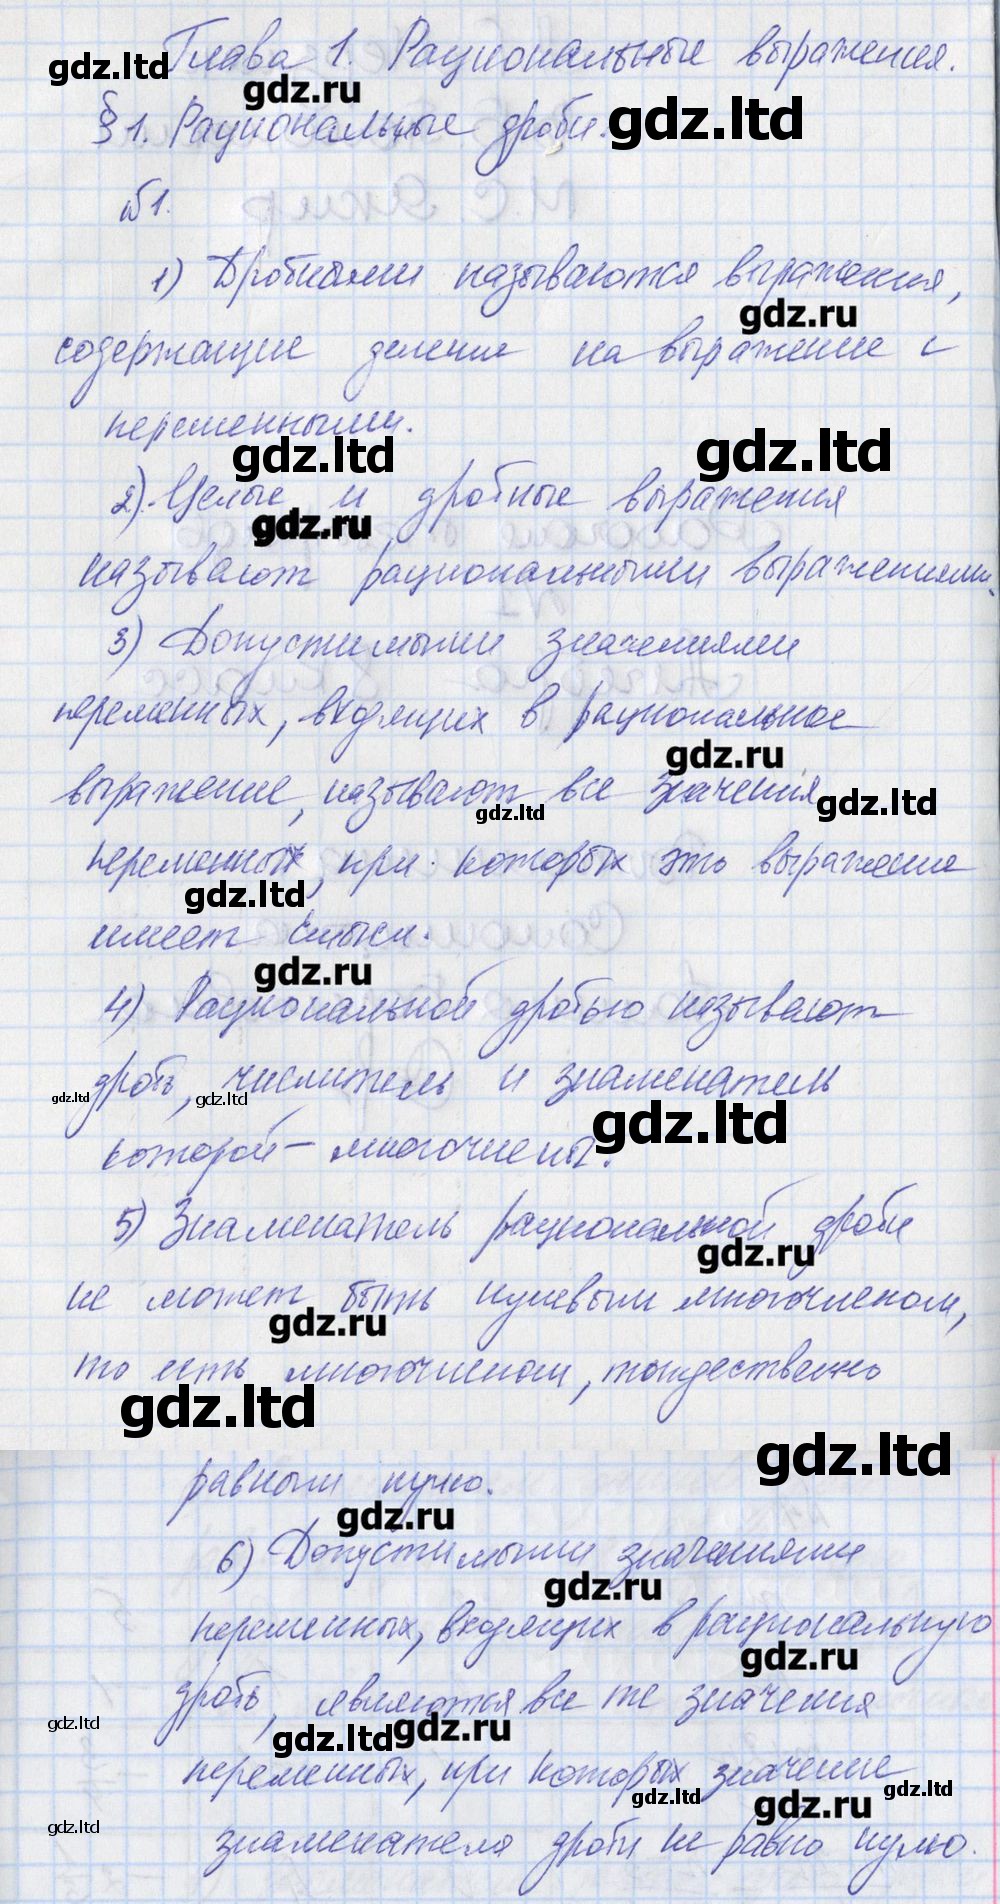 Глава 1. Рациональные выражения.
gdz.ltd
gdz.ru
§1. Рациональные дроби.
gdz.ltd
№1.
1) Дробными называются выражения,
gdz.ru
содержащие деление на выражение с
переменными.
gdz.ltd
gdz.ltd
2). Целые и дробные выражения
gdz.ru
называют рациональными выражениями.
3) Допустимыми значениями
переменных, входящих в рациональное
gdz.ru
выражение, называют все значения
gdz.ltd
gdz.ltd
переменных, при которых это выражение
gdz.ltd
имеет смысл.
gdz.ru
4) Рациональной дробью называют
дробь, числитель и знаменатель
gdz.ltd
gdz.ltd
gdz.ltd
которой – многочлены.
5) Знаменатель рациональной дроби
gdz.ru
не может быть нулевым многочленом,
gdz.ru
то есть многочленом, тождественно
gdz.ltd
gdz.ltd
равным нулю.
gdz.ru
6) Допустимыми значениями
gdz.ru
переменных, входящих в рациональную
gdz.ru
дробь, являются все те значения
gdz.ltd
gdz.ltd
gdz.ru
переменных, при которых значение
gdz.ltd
gdz.ltd
gdz.ru
gdz.ltd
знаменателя дроби не равно нулю.